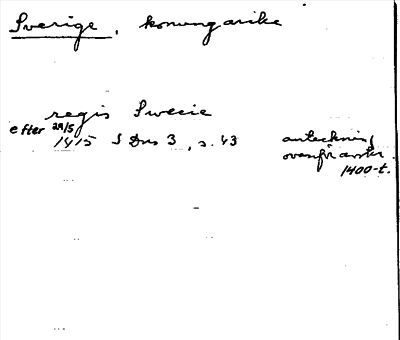 Sverige, konungarike
regis Swecie
efter 29/5
1415 S Dns 3, s. 43
anteckning
ovanför avskr.
1400-t.